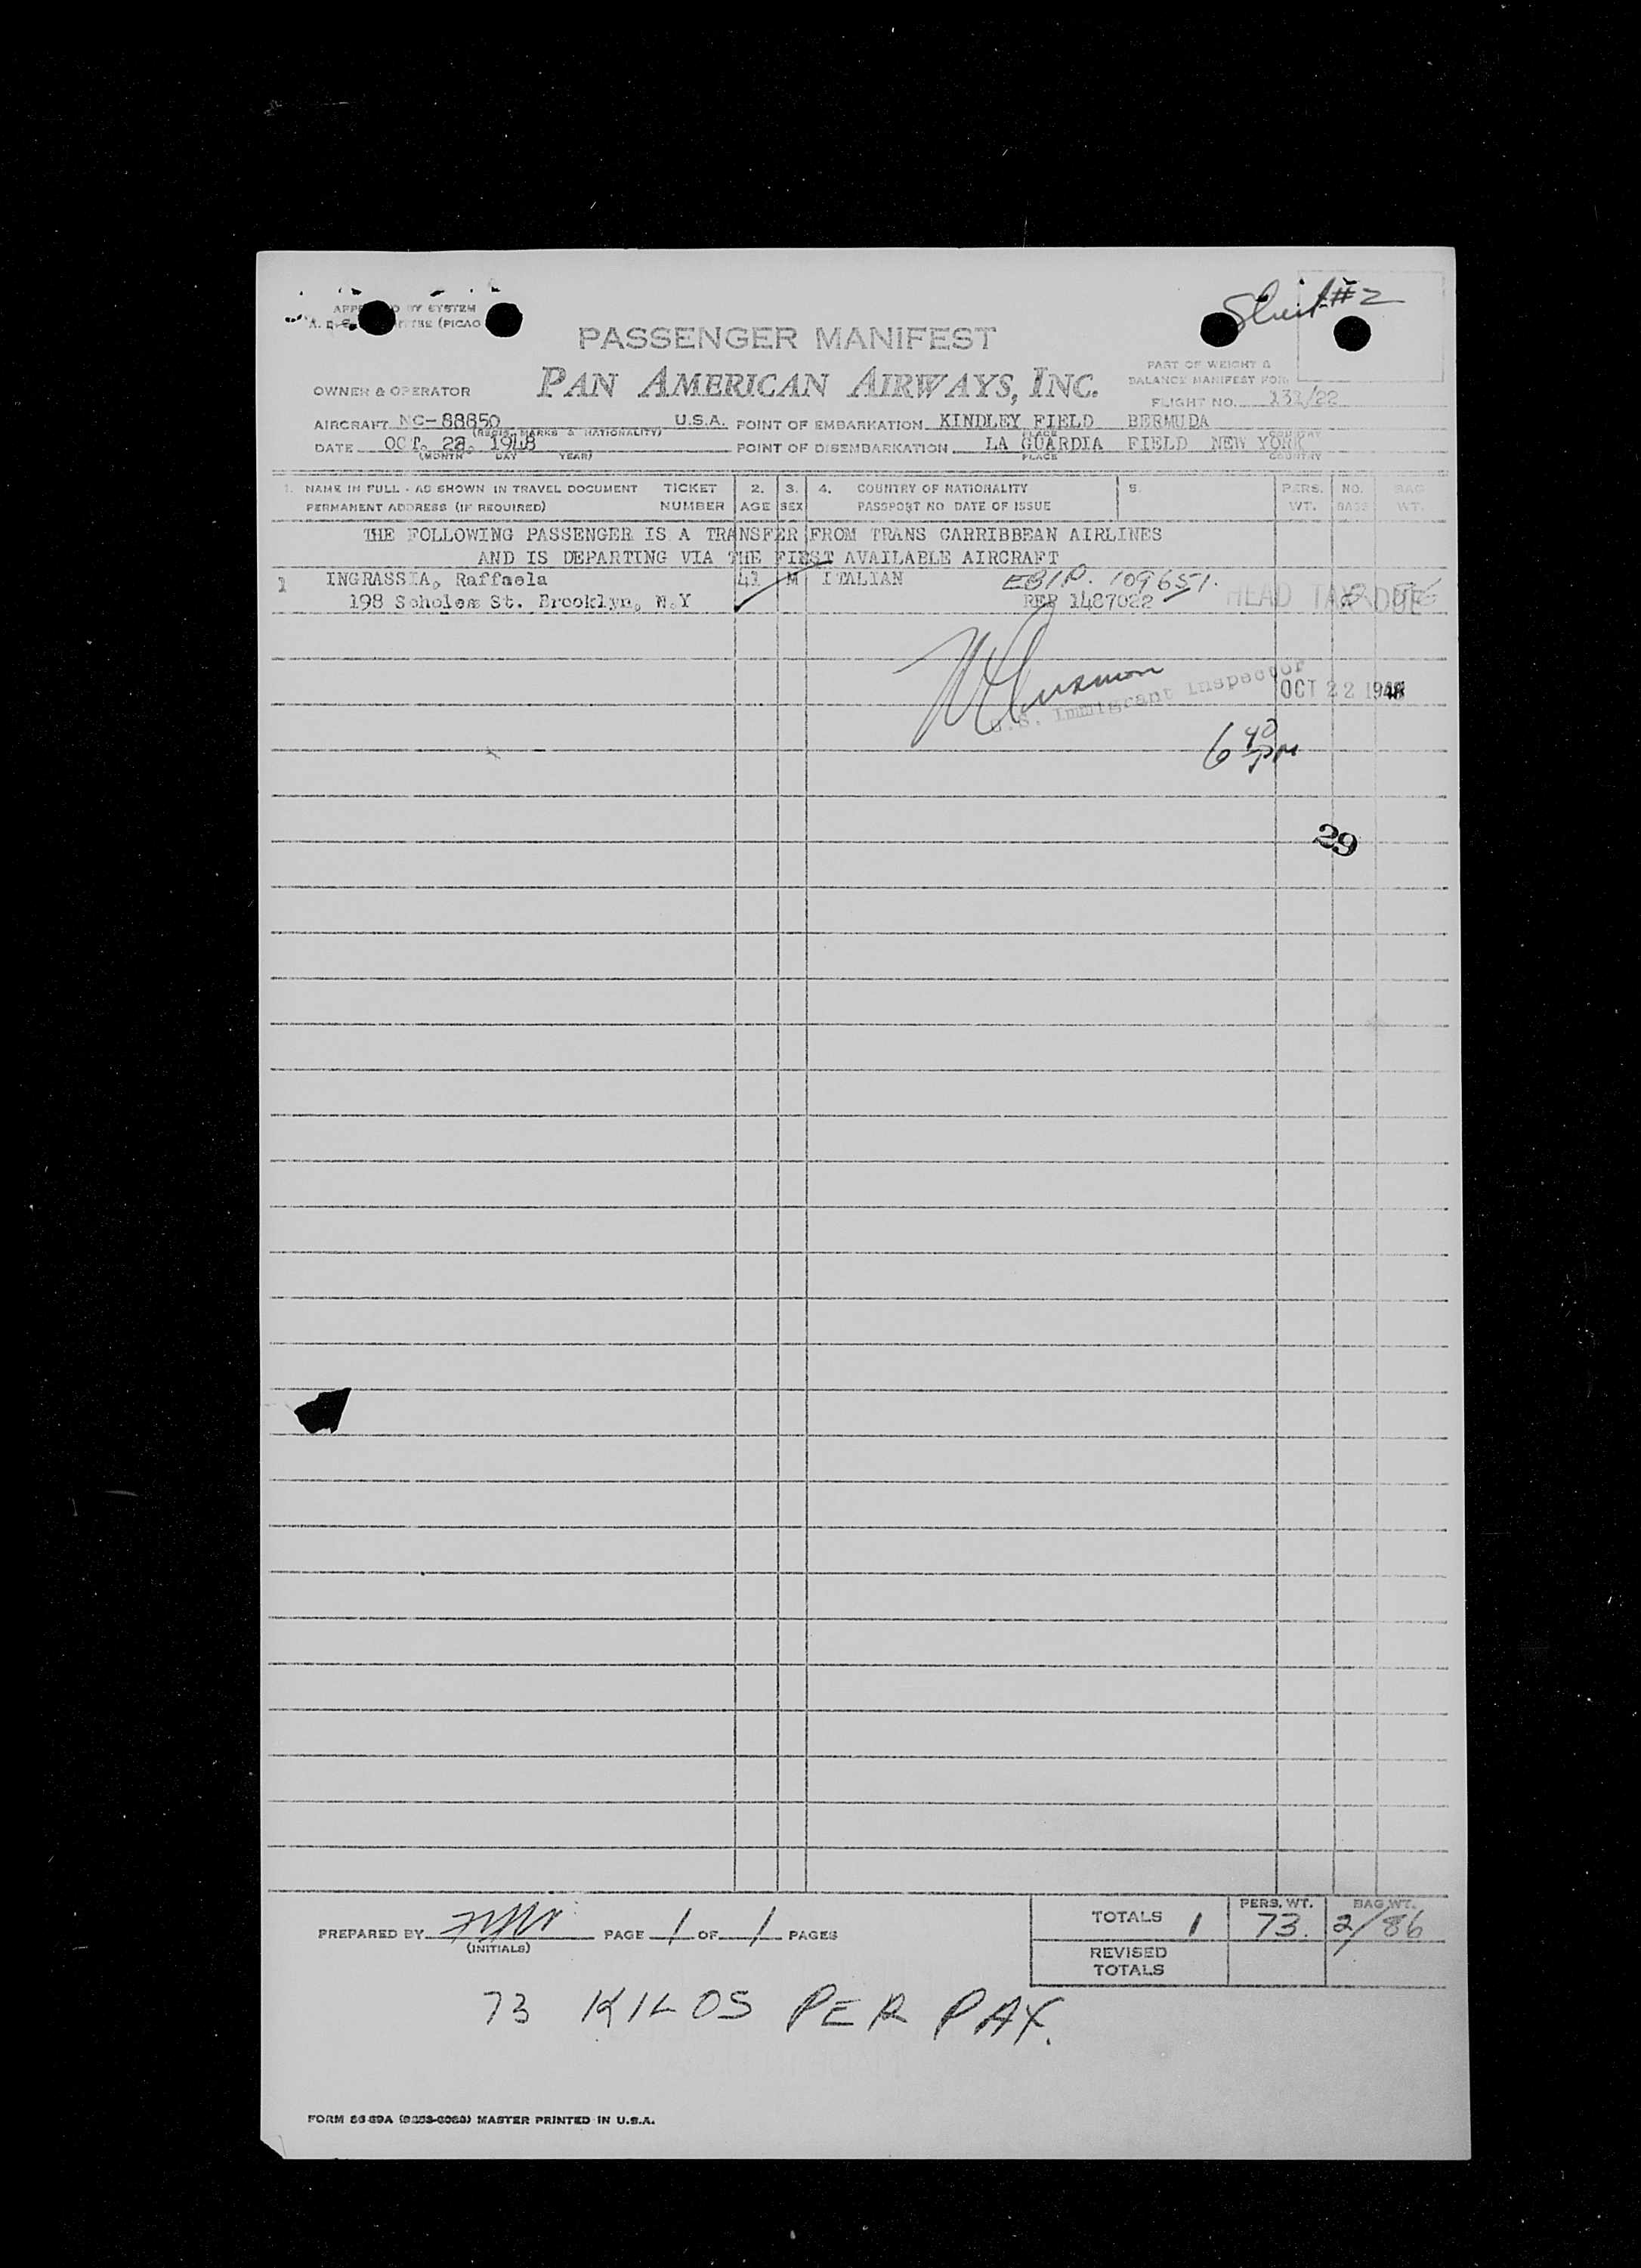 Sheet #2
PASSENGER MANIFEST
PAN AMERICAN AIRWAYS, INC.
PART OF WEIGHT &
BALANCE MANIFEST FOR
FLIGHT NO. 131/22
OWNER & OPERATOR
AIRCRAFT NC-88850 U.S.A. POINT OF EMBARKATION KINDLEY FIELD BERMUDA
(REGIS. MARKS & NATIONALITY) PLACE COUNTRY
DATE OCT. 22, 1948 POINT OF DISEMBARKATION LA GUARDIA FIELD NEW YORK
(MONTH DAY YEAR) PLACE COUNTRY
1. NAME IN FULL - AS SHOWN IN TRAVEL DOCUMENT TICKET 2. 3. 4. COUNTRY OF NATIONALITY 5. PERS. NO. BAG
PERMANENT ADDRESS (IF REQUIRED) NUMBER AGE SEX PASSPORT NO DATE OF ISSUE WT. BAGS WT.
THE FOLLOWING PASSENGER IS A TRANSFER FROM TRANS CARRIBBEAN AIRLINES
AND IS DEPARTING VIA THE FIRST AVAILABLE AIRCRAFT
1 INGRASSIA, Raffaela 41 M ITALIAN 109651.
198 Scholes St. Brooklyn, N.Y REP 1487022 HEAD TAX DUE
U.S. Immigrant Inspector OCT 22 1948
6 40 PM
29
PREPARED BY PAGE 1 OF 1 PAGES
(INITIALS)
PERS. WT. BAG WT.
TOTALS 1 73. 2/86
REVISED
TOTALS
73 KILOS PER PAX.
MASTER PRINTED IN U.S.A.